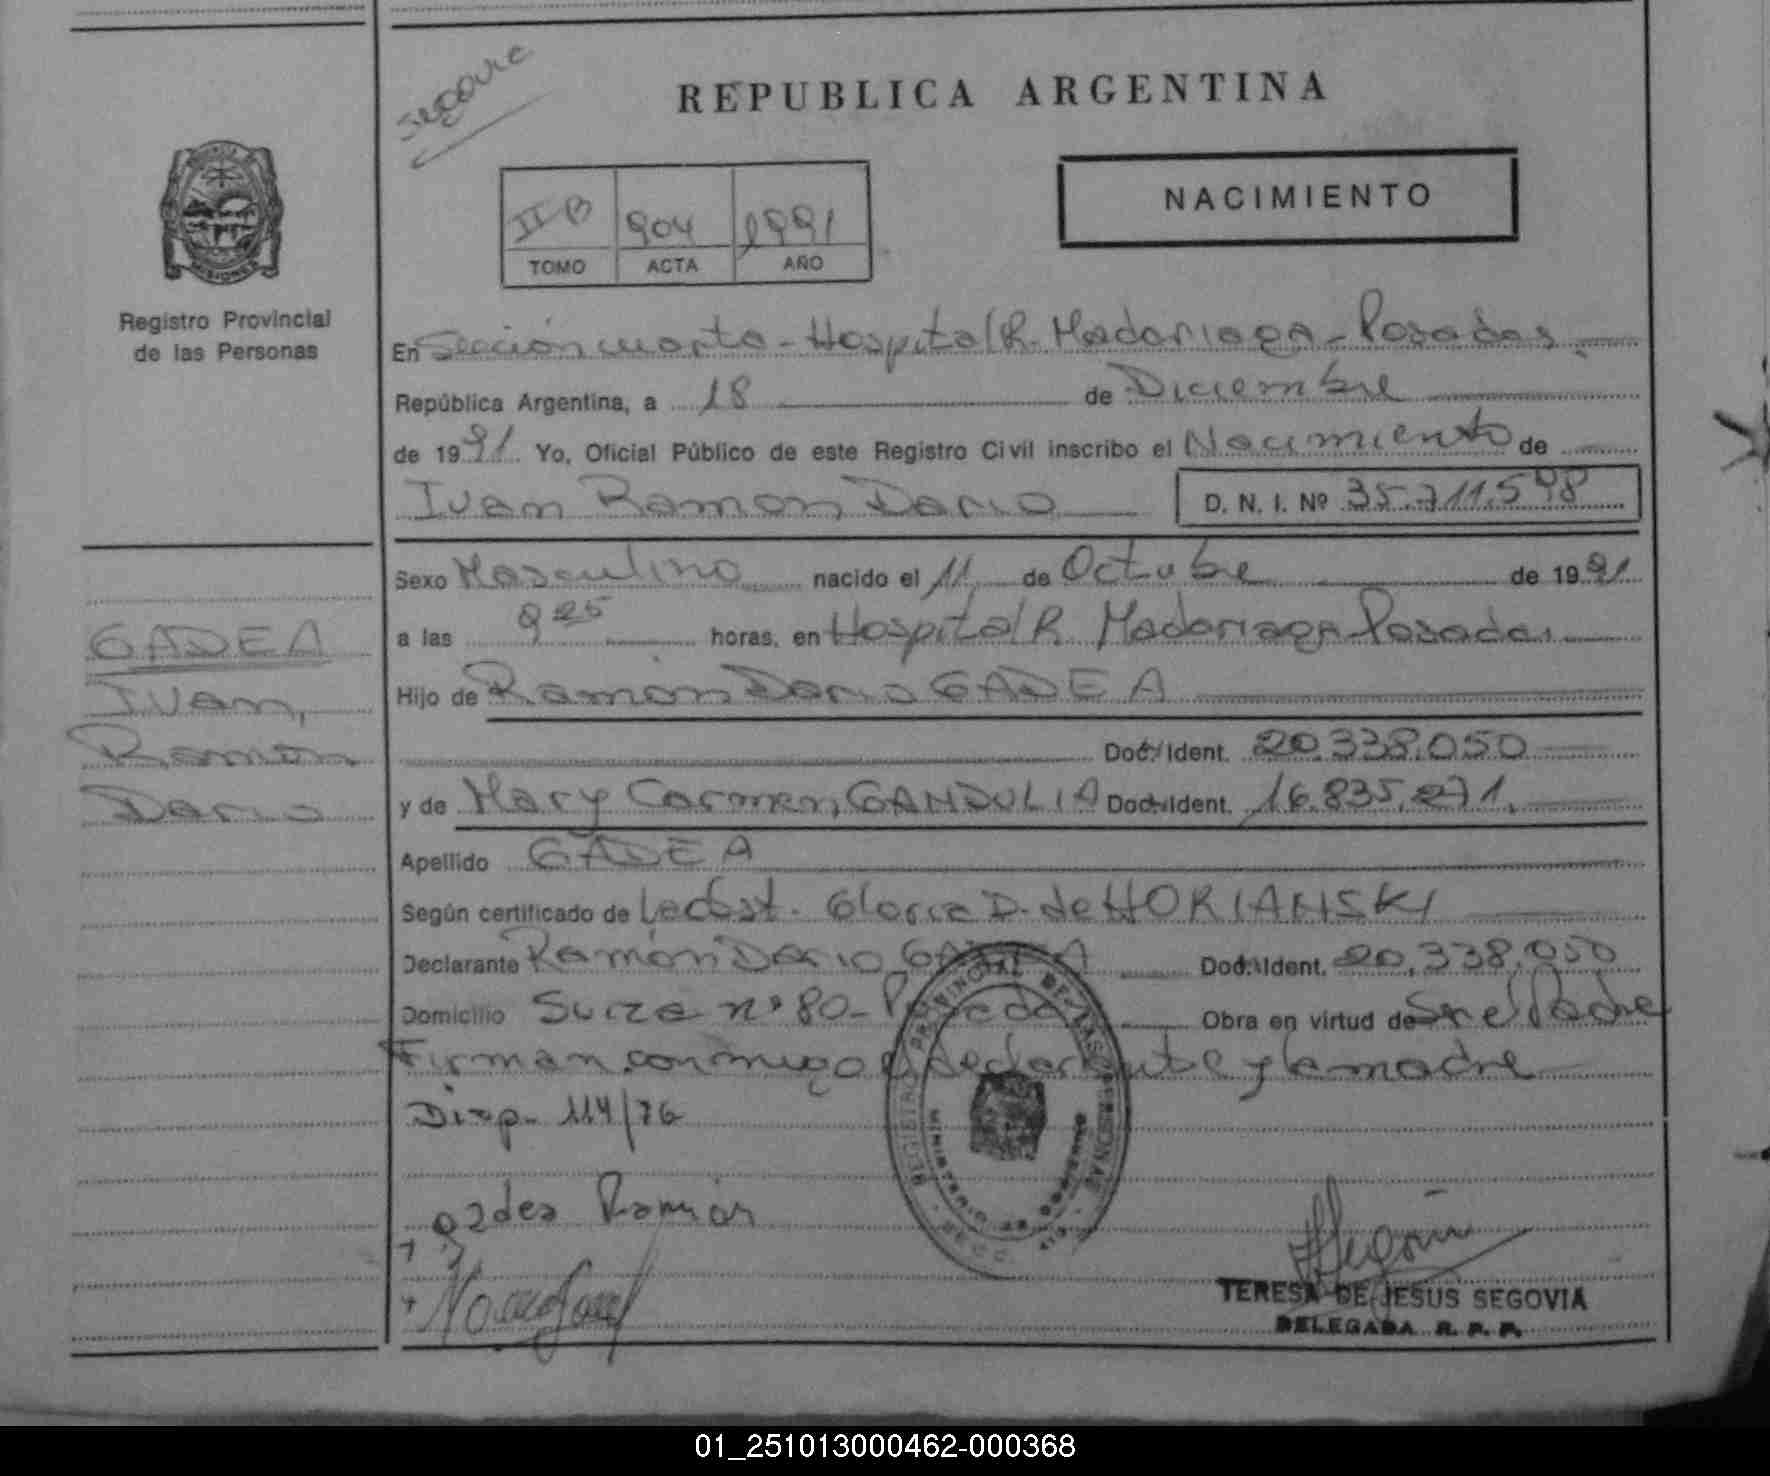 Segovia
REPUBLICA ARGENTINA
NACIMIENTO
II B 904 1991
TOMO ACTA AÑO
MISIONES
Registro Provincial
de las Personas
En Sección cuarta - Hospital R. Madariaga - Posadas
República Argentina, a 18 de Diciembre
de 1991. Yo, Oficial Público de este Registro Civil inscribo el Nacimiento de
Ivan Ramon Dario D. N. I. Nº 35.711.598
Sexo Masculino nacido el 11 de Octubre de 1991
a las 9 25 horas, en Hospital R. Madariaga Posadas
GADEA
Ivan,
Ramon
Dario
Hijo de Ramón Dario GADEA
Doc. Ident. 20.338.050
y de Mary Carmen GANDULIA Doc. Ident. 16.835.271
Apellido GADEA
Según certificado de La Obst. Gloria D. de HORIANSKI
Declarante Ramón Dario GADEA Doc. Ident. 20.338.050
Domicilio Suiza nº 80 - Posadas Obra en virtud de Ser el Padre
Firman conmigo el declarante y la madre
Disp. 114/76
REGISTRO PROVINCIAL DE LAS PERSONAS
MINISTERIO DE GOBIERNO
gadea Ramón
TERESA DE JESUS SEGOVIA
DELEGADA R. P. P.
01_251013000462-000368